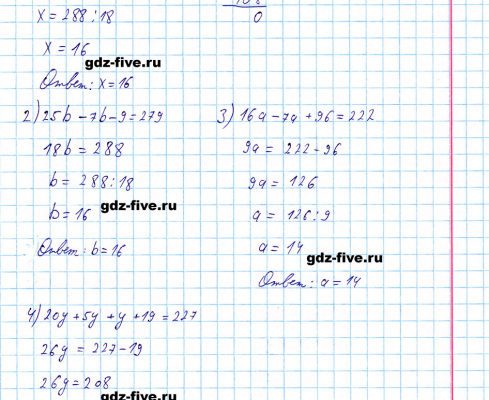 x = 288 : 18
0
x = 16
gdz-five.ru
Ответ: x = 16
2) 25b - 7b - 9 = 279
18b = 288
b = 288 : 18
b = 16
gdz-five.ru
Ответ: b = 16
3) 16a - 7a + 96 = 222
9a = 222 - 96
9a = 126
a = 126 : 9
a = 14
gdz-five.ru
Ответ: a = 14
4) 20y + 5y + y + 19 = 227
26y = 227 - 19
26y = 208
gdz-five.ru